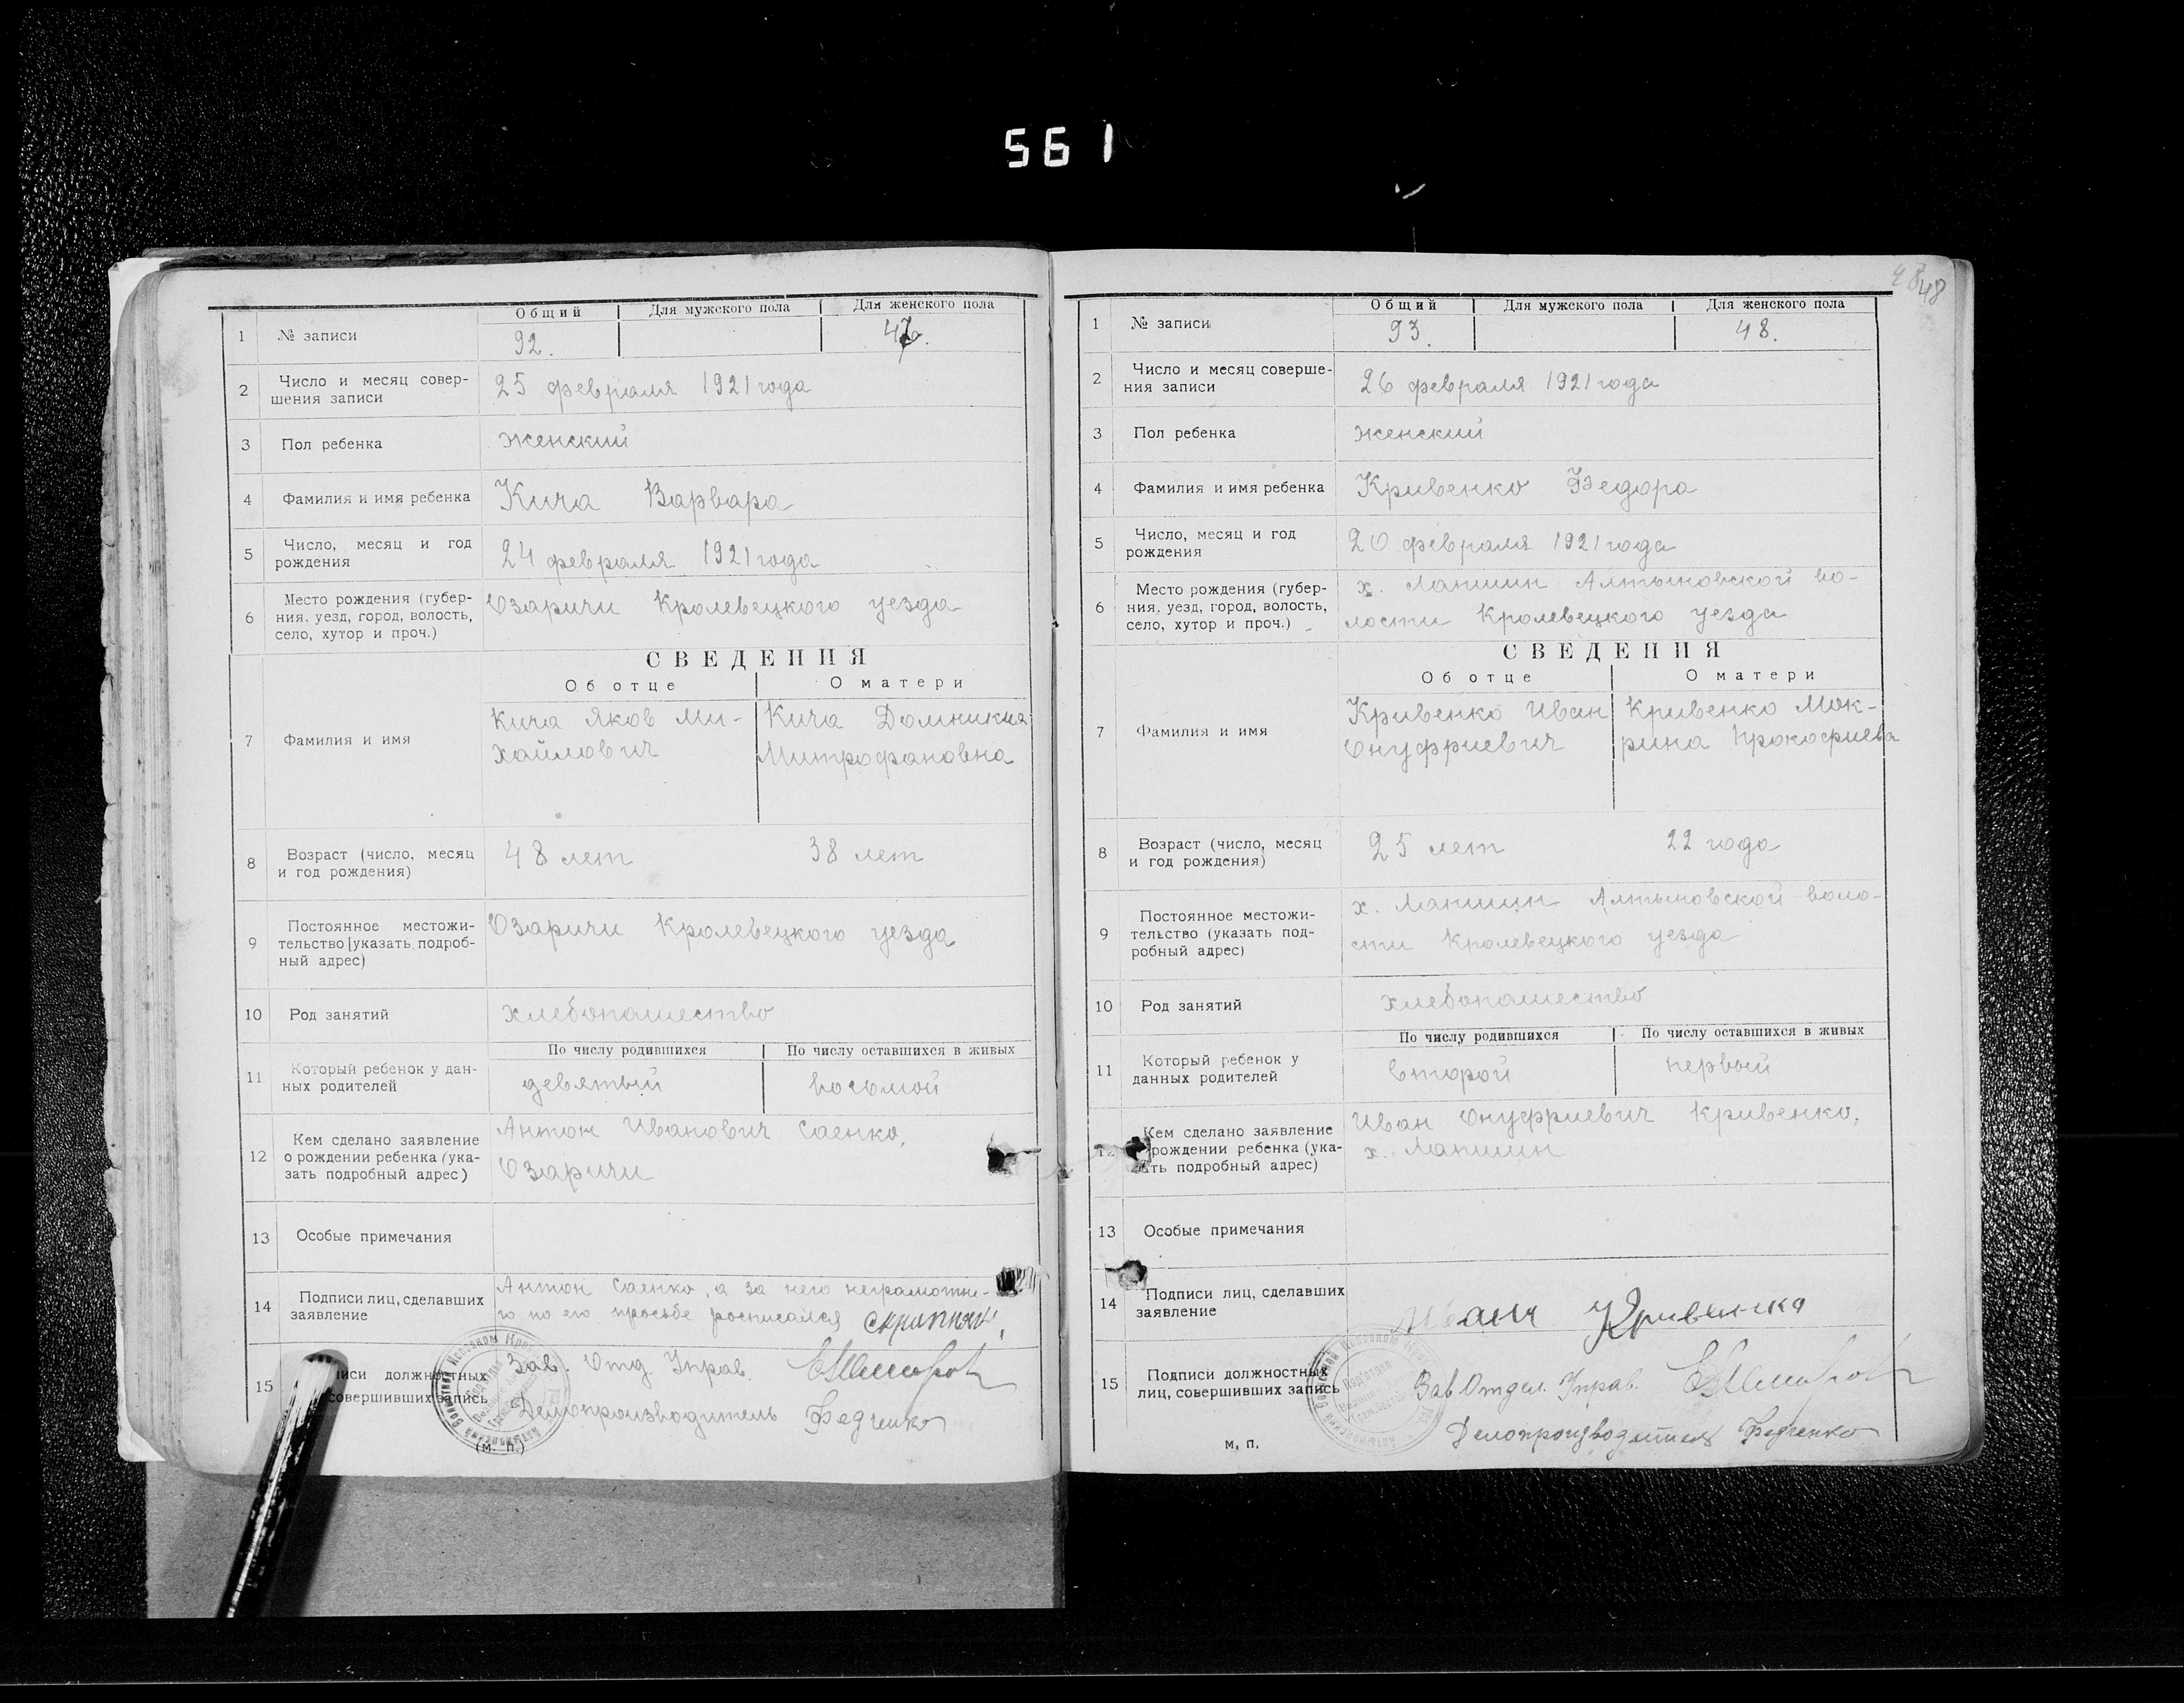 561
48 48
Общий Для мужского пола Для женского пола
1 № записи 92. 47.
2 Число и месяц совер-
шения записи
25 февраля 1921 года
3 Пол ребенка женский
4 Фамилия и имя ребенка Кича Варвара
5 Число, месяц и год
рождения
24 февраля 1921 года
6 Место рождения (губер-
ния, уезд, город, волость,
село, хутор и проч.)
Озаричи Кролевецкого уезда
СВЕДЕНИЯ
Об отце О матери
7 Фамилия и имя
Кича Яков Ми-
хайлович
Кича Домникия
Митрофановна
8 Возраст (число, месяц
и год рождения)
48 лет 38 лет
9 Постоянное местожи-
тельство [указать подроб-
ный адрес)
Озаричи Кролевецкого уезда
10 Род занятий хлебопашество
По числу родившихся По числу оставшихся в живых
11 Который ребенок у дан-
ных родителей
девятый восьмой
12 Кем сделано заявление
о рождении ребенка (ука-
зать подробный адрес)
Антон Иванович Саенко,
Озаричи
13 Особые примечания
14 Подписи лиц, сделавших
заявление
Антон Саенко, а за него неграмотно-
го по его просьбе росписался
15 иси должностных
совершивших запись
Зав. Отд. Управ.
Делопроизводитель Федченко
(м. п.)
Общий Для мужского пола Для женского пола
1 № записи 93. 48.
2 Число и месяц соверше-
ния записи
26 февраля 1921 года
3 Пол ребенка женский
4 Фамилия и имя ребенка Кривенко Федора
5 Число, месяц и год
рождения
20 февраля 1921 года
6 Место рождения (губер-
ния, уезд, город, волость,
село, хутор и проч.)
х. Лапшин Алтыновской во-
лости Кролевецкого уезда
СВЕДЕНИЯ
Об отце О матери
7 Фамилия и имя
Кривенко Иван
Онуфриевич
Кривенко Мок-
рина Прокофиева
8 Возраст (число, месяц
и год рождения)
25 лет 22 года
9 Постоянное местожи-
тельство (указать под-
робный адрес)
х. Лапшин Алтыновской воло-
сти Кролевецкого уезда
10 Род занятий хлебопашество
По числу родившихся По числу оставшихся в живых
11 Который ребенок у
данных родителей
второй первый
12 Кем сделано заявление
рождении ребенка (ука-
зать подробный адрес)
Иван Онуфриевич Кривенко,
х. Лапшин
13 Особые примечания
14 Подписи лиц, сделавших
заявление
Иван Кривенка
15 Подписи должностных
лиц, совершивших запись
Зав Отдел. Управ.
Делопроизводитель Федченко
м. п.